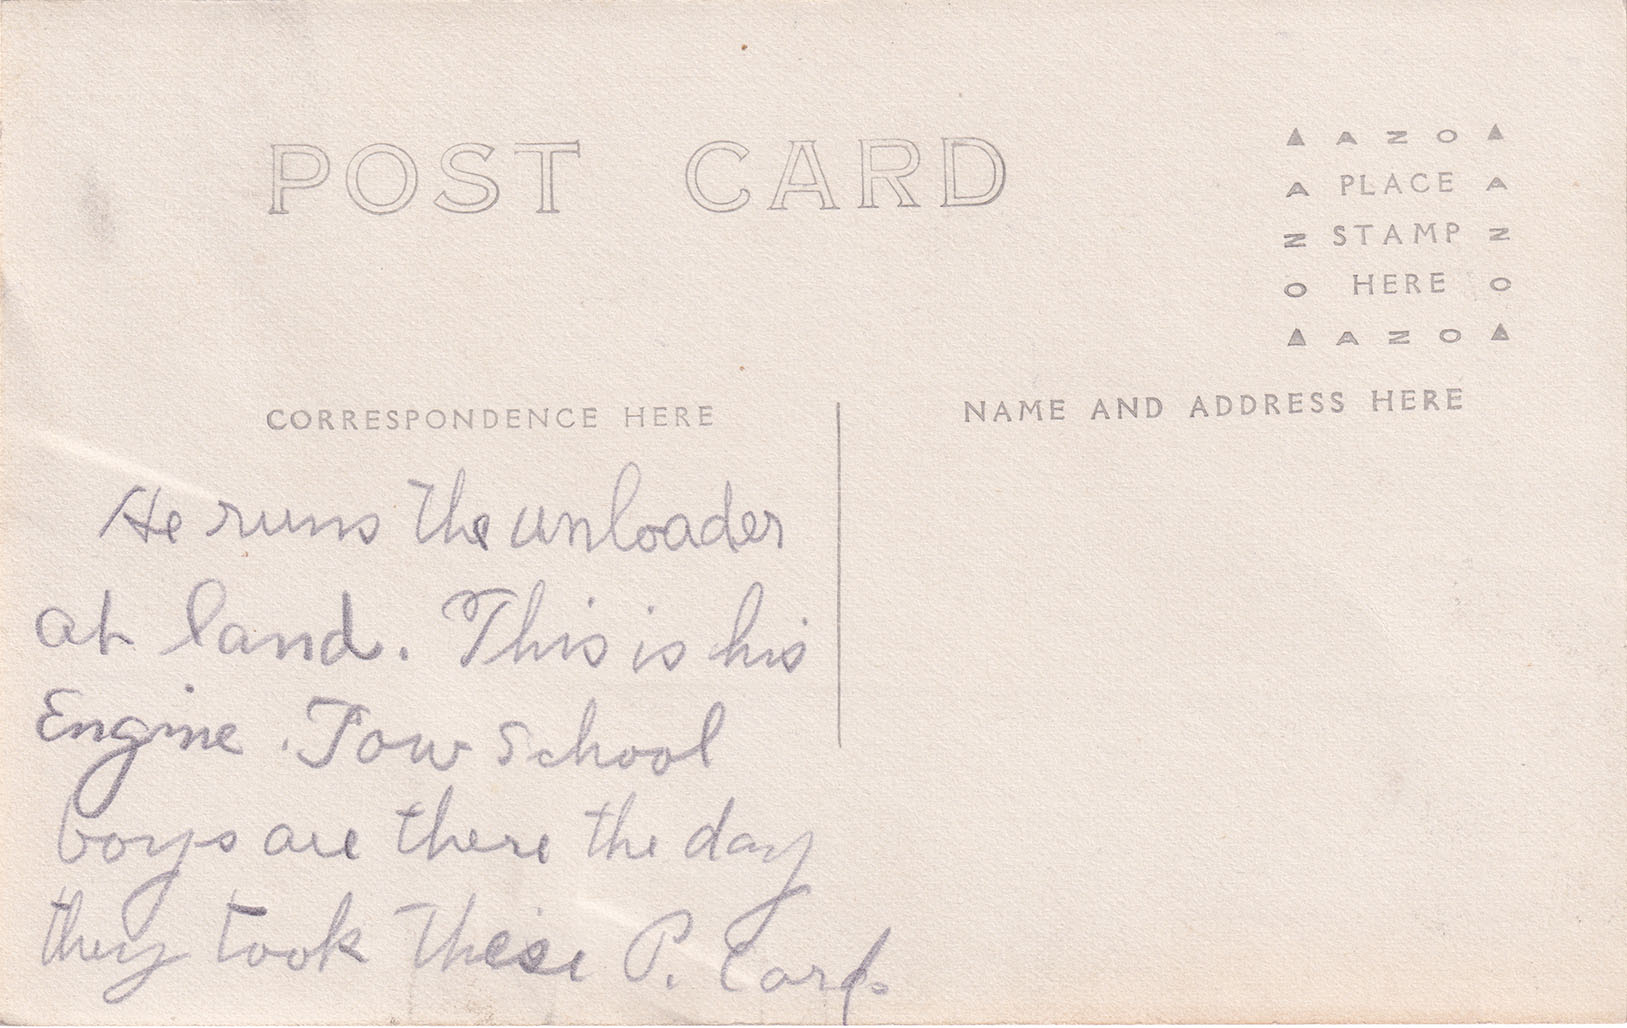 POST CARD
▲ A Z O ▲
A PLACE A
Z STAMP Z
O HERE O
▲ A Z O ▲
CORRESPONDENCE HERE
NAME AND ADDRESS HERE
He runs the unloader
at land. This is his
Engine. Tow School
boys are there the day
they took these P. Card.